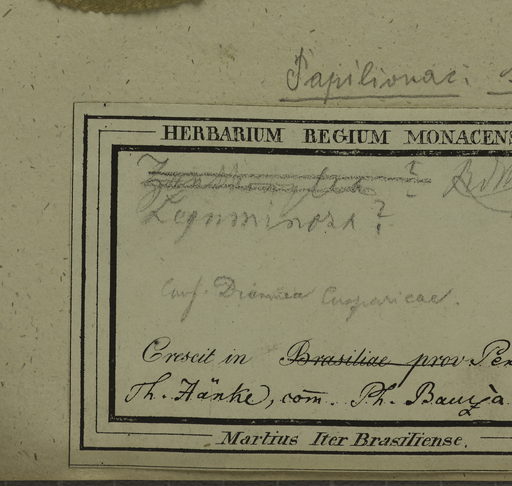 Papilionac.
HERBARIUM REGIUM MONACENS
?
Leguminosa?
Conf. Diosmea Cusparieae.
Crescit in Brasiliae prov Per
Th. Hänke, com̄. Ph. Bauzà
Martius Iter Brasiliense.